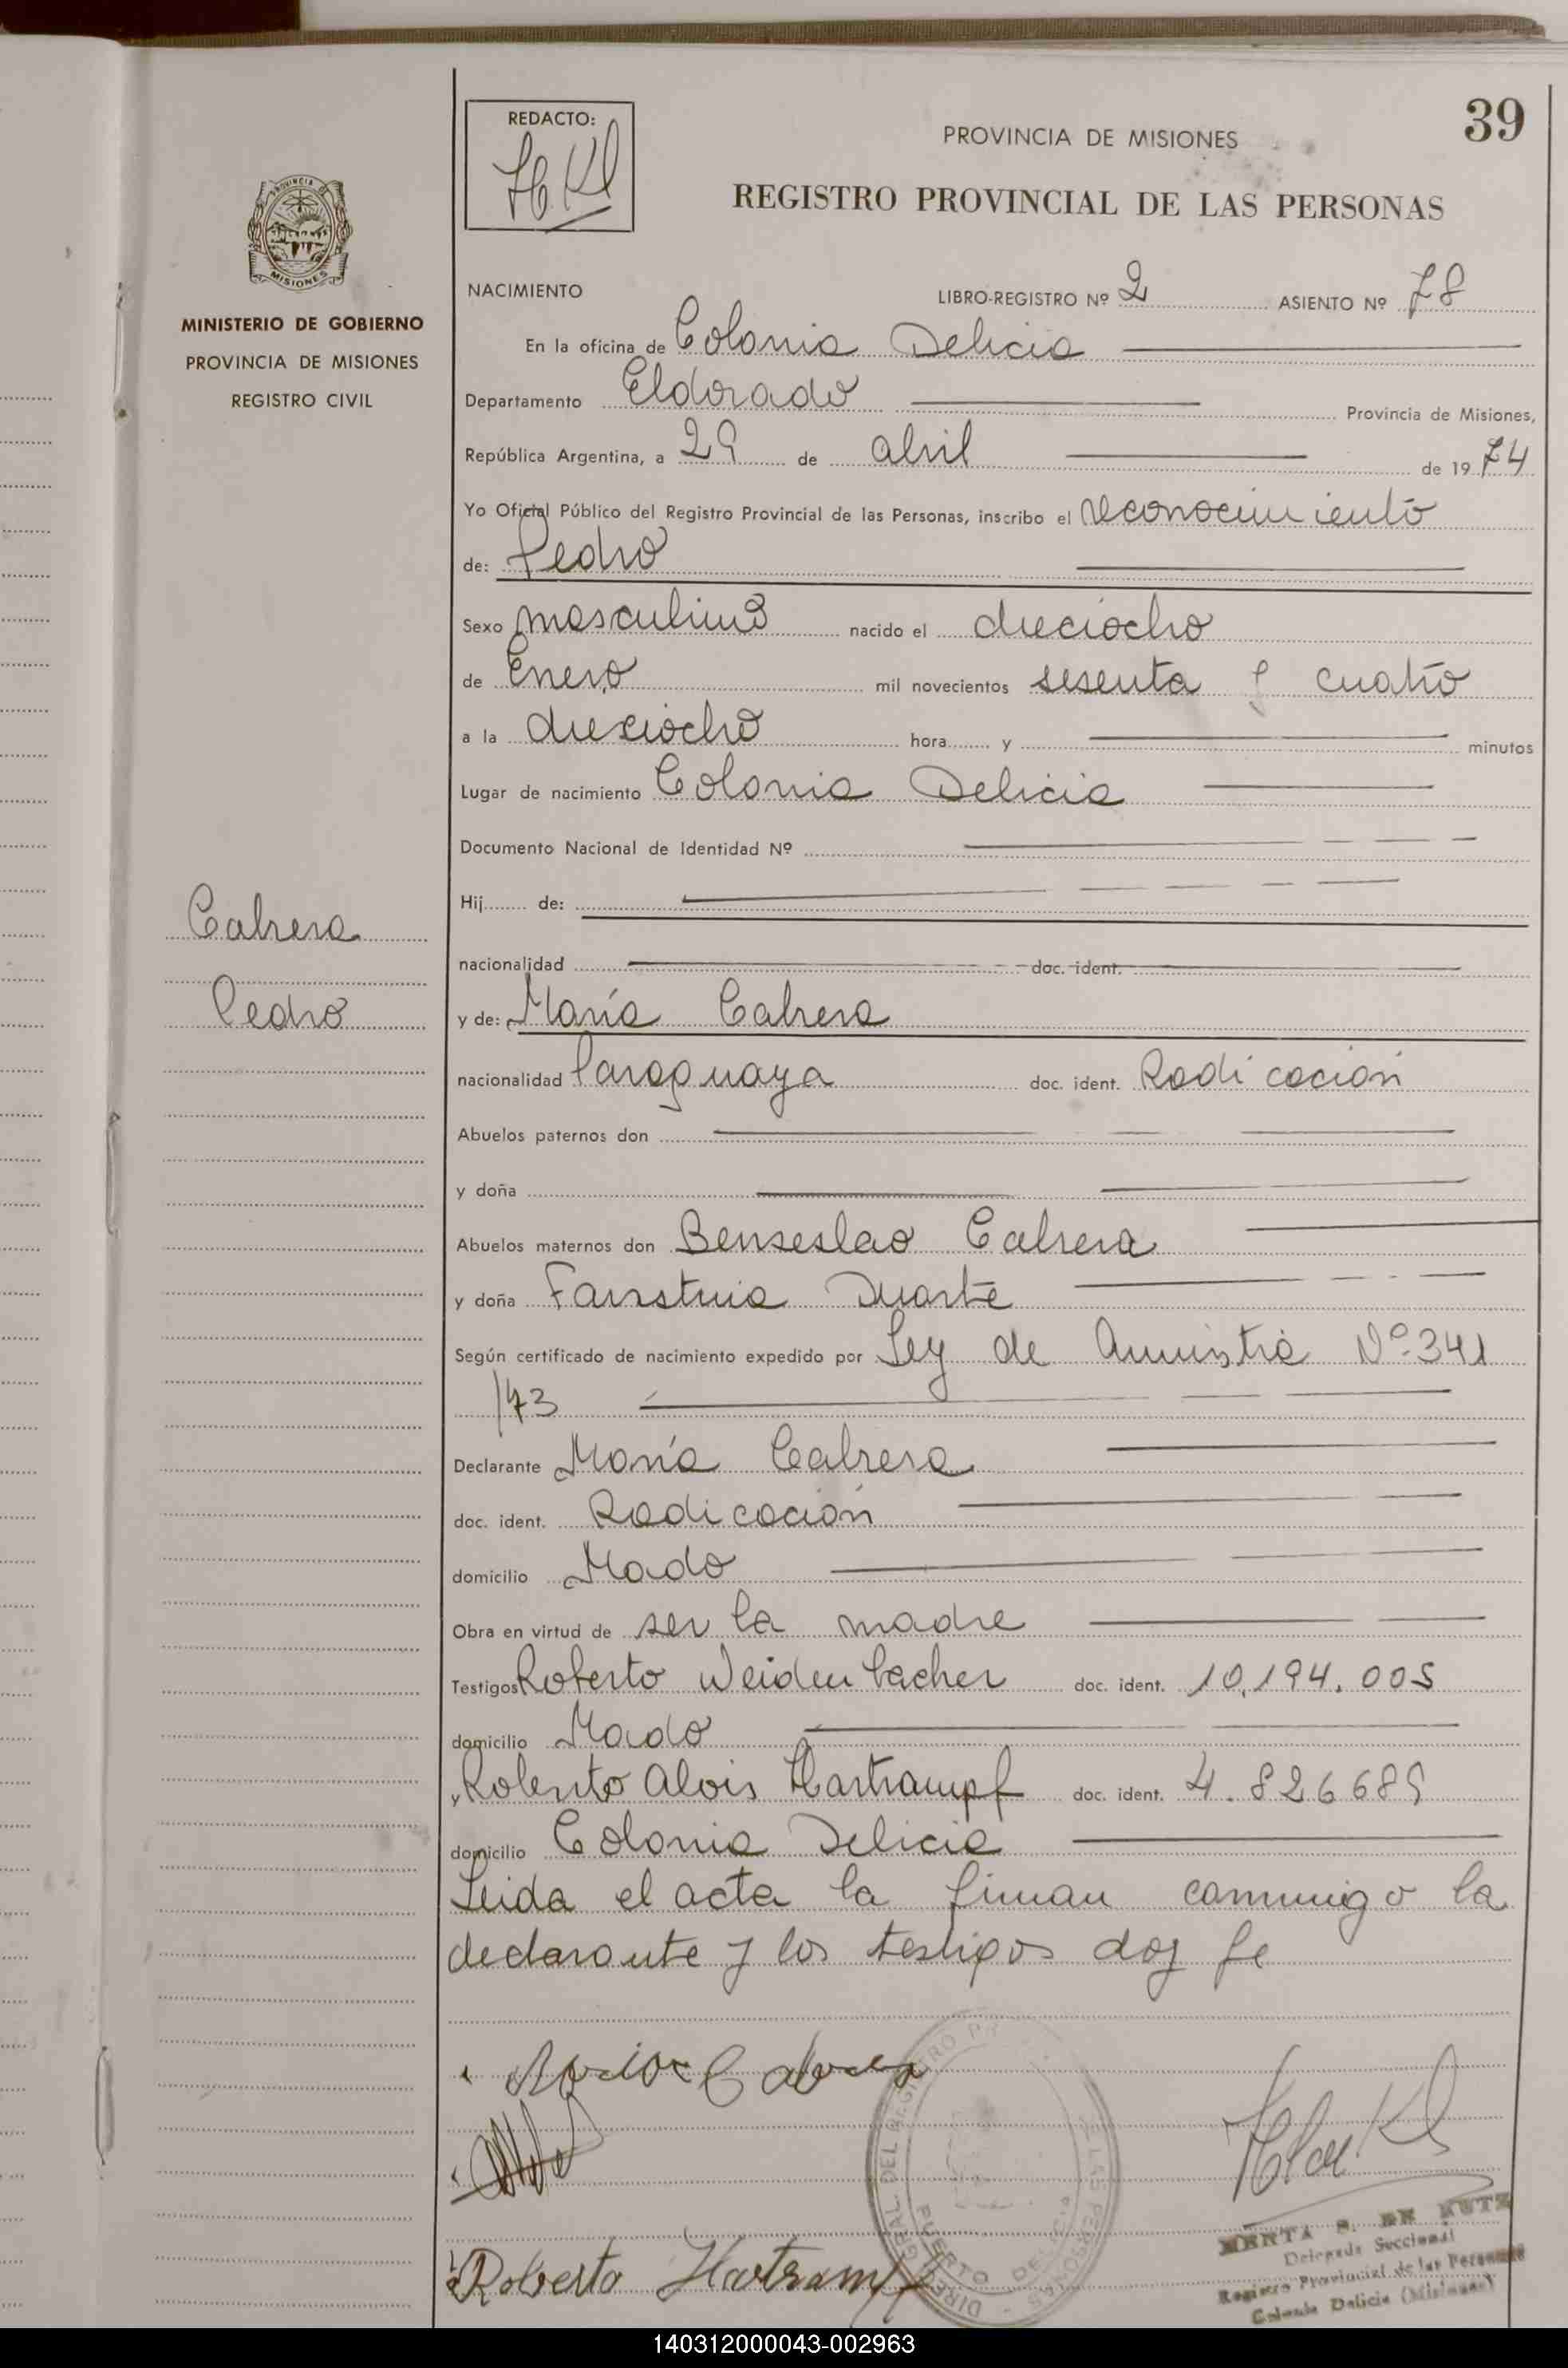 39
REDACTO:
PROVINCIA DE MISIONES
REGISTRO PROVINCIAL DE LAS PERSONAS
PROVINCIA DE
MISIONES
MINISTERIO DE GOBIERNO
PROVINCIA DE MISIONES
REGISTRO CIVIL
Cabrera
Pedro
NACIMIENTO LIBRO-REGISTRO Nº 2 ASIENTO Nº 78
En la oficina de Colonia Delicia
Departamento Eldorado Provincia de Misiones,
República Argentina, a 29 de abril de 1974
Yo Oficial Público del Registro Provincial de las Personas, inscribo el reconocimiento
de: Pedro
Sexo masculino nacido el dieciocho
de Enero mil novecientos sesenta y cuatro
a la dieciocho hora y minutos
Lugar de nacimiento Colonia Delicia
Documento Nacional de Identidad Nº
Hij de:
nacionalidad doc. ident.
y de: María Cabrera
nacionalidad Paraguaya doc. ident. Radicación
Abuelos paternos don
y doña
Abuelos maternos don Benseslao Cabrera
y doña Faustina Duarte
Según certificado de nacimiento expedido por Ley de Amnistia Nº 341
/73
Declarante María Cabrera
doc. ident. Radicación
domicilio Mado
Obra en virtud de ser la madre
Testigos Roberto Weidenbacher doc. ident. 10.194.005
domicilio Mado
y Roberto Alois Hartrampf doc. ident. 4.826689
domicilio Colonia Delicia
Leida el acta la firman conmigo la
declarante y los testigos doy fe
Roberto Hartrampf
DE
Delegada Seccional
Registro Provincial de las Personas
Colonia Delicia (Misiones)
140312000043-002963